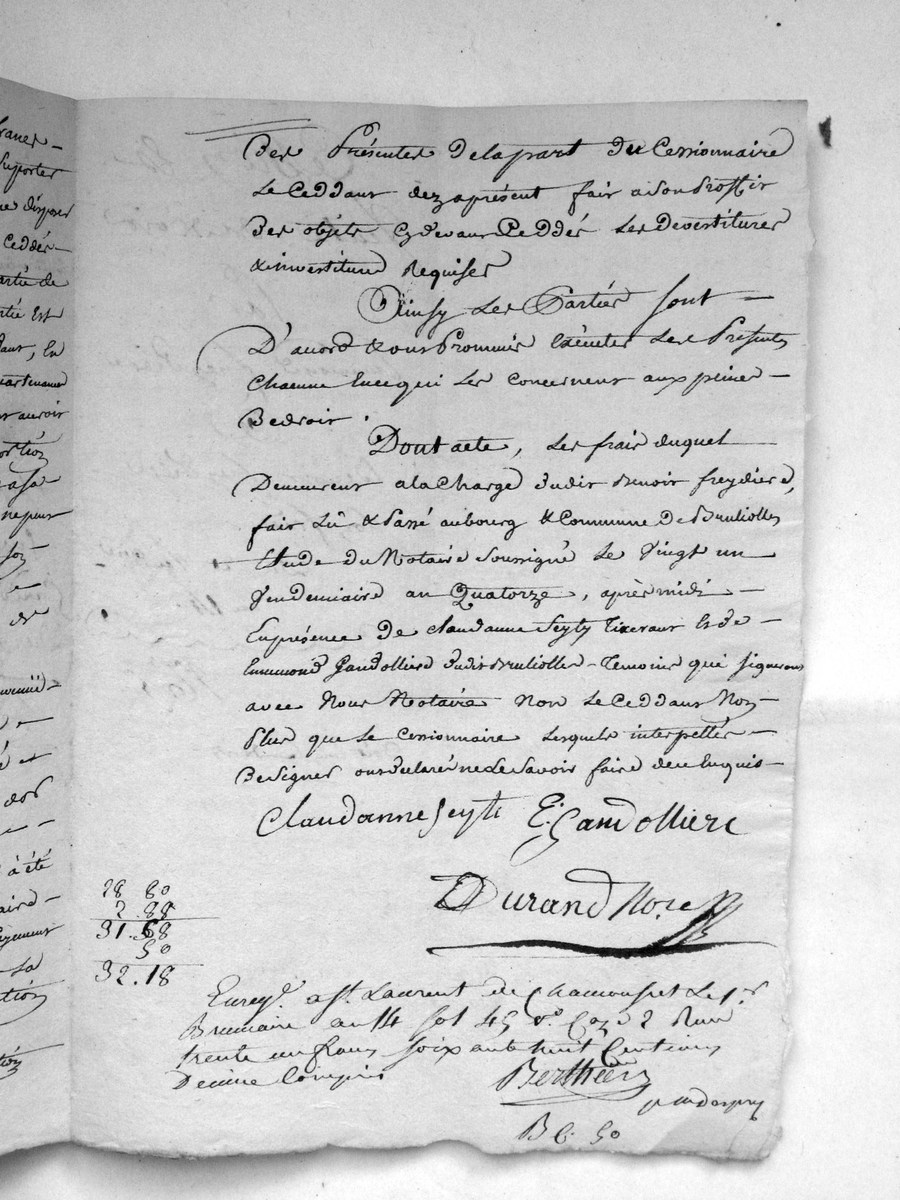 ranes -
suporter
ne disposer
Ceddés -
artie de
rtie Est
dant, En
artenance
r auoir
ortion
asa
ne peut
de
à été
aire -
ayement
La
Des Présentes delapart du Cessionnaire
Le Ceddant dezaprésent fait a Son Proffit
Des objets Cydevant Ceddés Les Devestitures
& investitures Requises
Ainsy Les Parties sont -
D'acord & ont Prommis Exécuter Les Présentes
Chacune Encequi Les Concernent aux peines -
De droit.
Dont acte, Les frais duquel
Demeurent alaCharge dudit Benoit freydiere,
fait Lû & Passé aubourg & Commune De Brulliolles
Etude du Notaire Soussigné Le Vingt un
Vendemiaire an Quatorze, après midi -
Enprésence de Claudanne Seyty Tixerant & de -
Emmond Gandolliere dudit Brulliolles - Temoins qui signeront
avec Nous Notaire Non Le Ceddant Non
Plus que Le Cessionnaire Lesquels interpellés -
De signer ont declaré ne Le Savoir faire de ce Enquis -
Claudanne Seyti E. Gandolliere
Durand No.re
28 80
2 . 88
31 . 68
50
32 . 18
Enreg.é a St. Laurent de Chamousset Le 1.r
Brumaire an 14 fol 45 v.o Caze 2 Reçu
trente un francs soixante huit Centimes
Decime Compris
Berthier
B C. 50